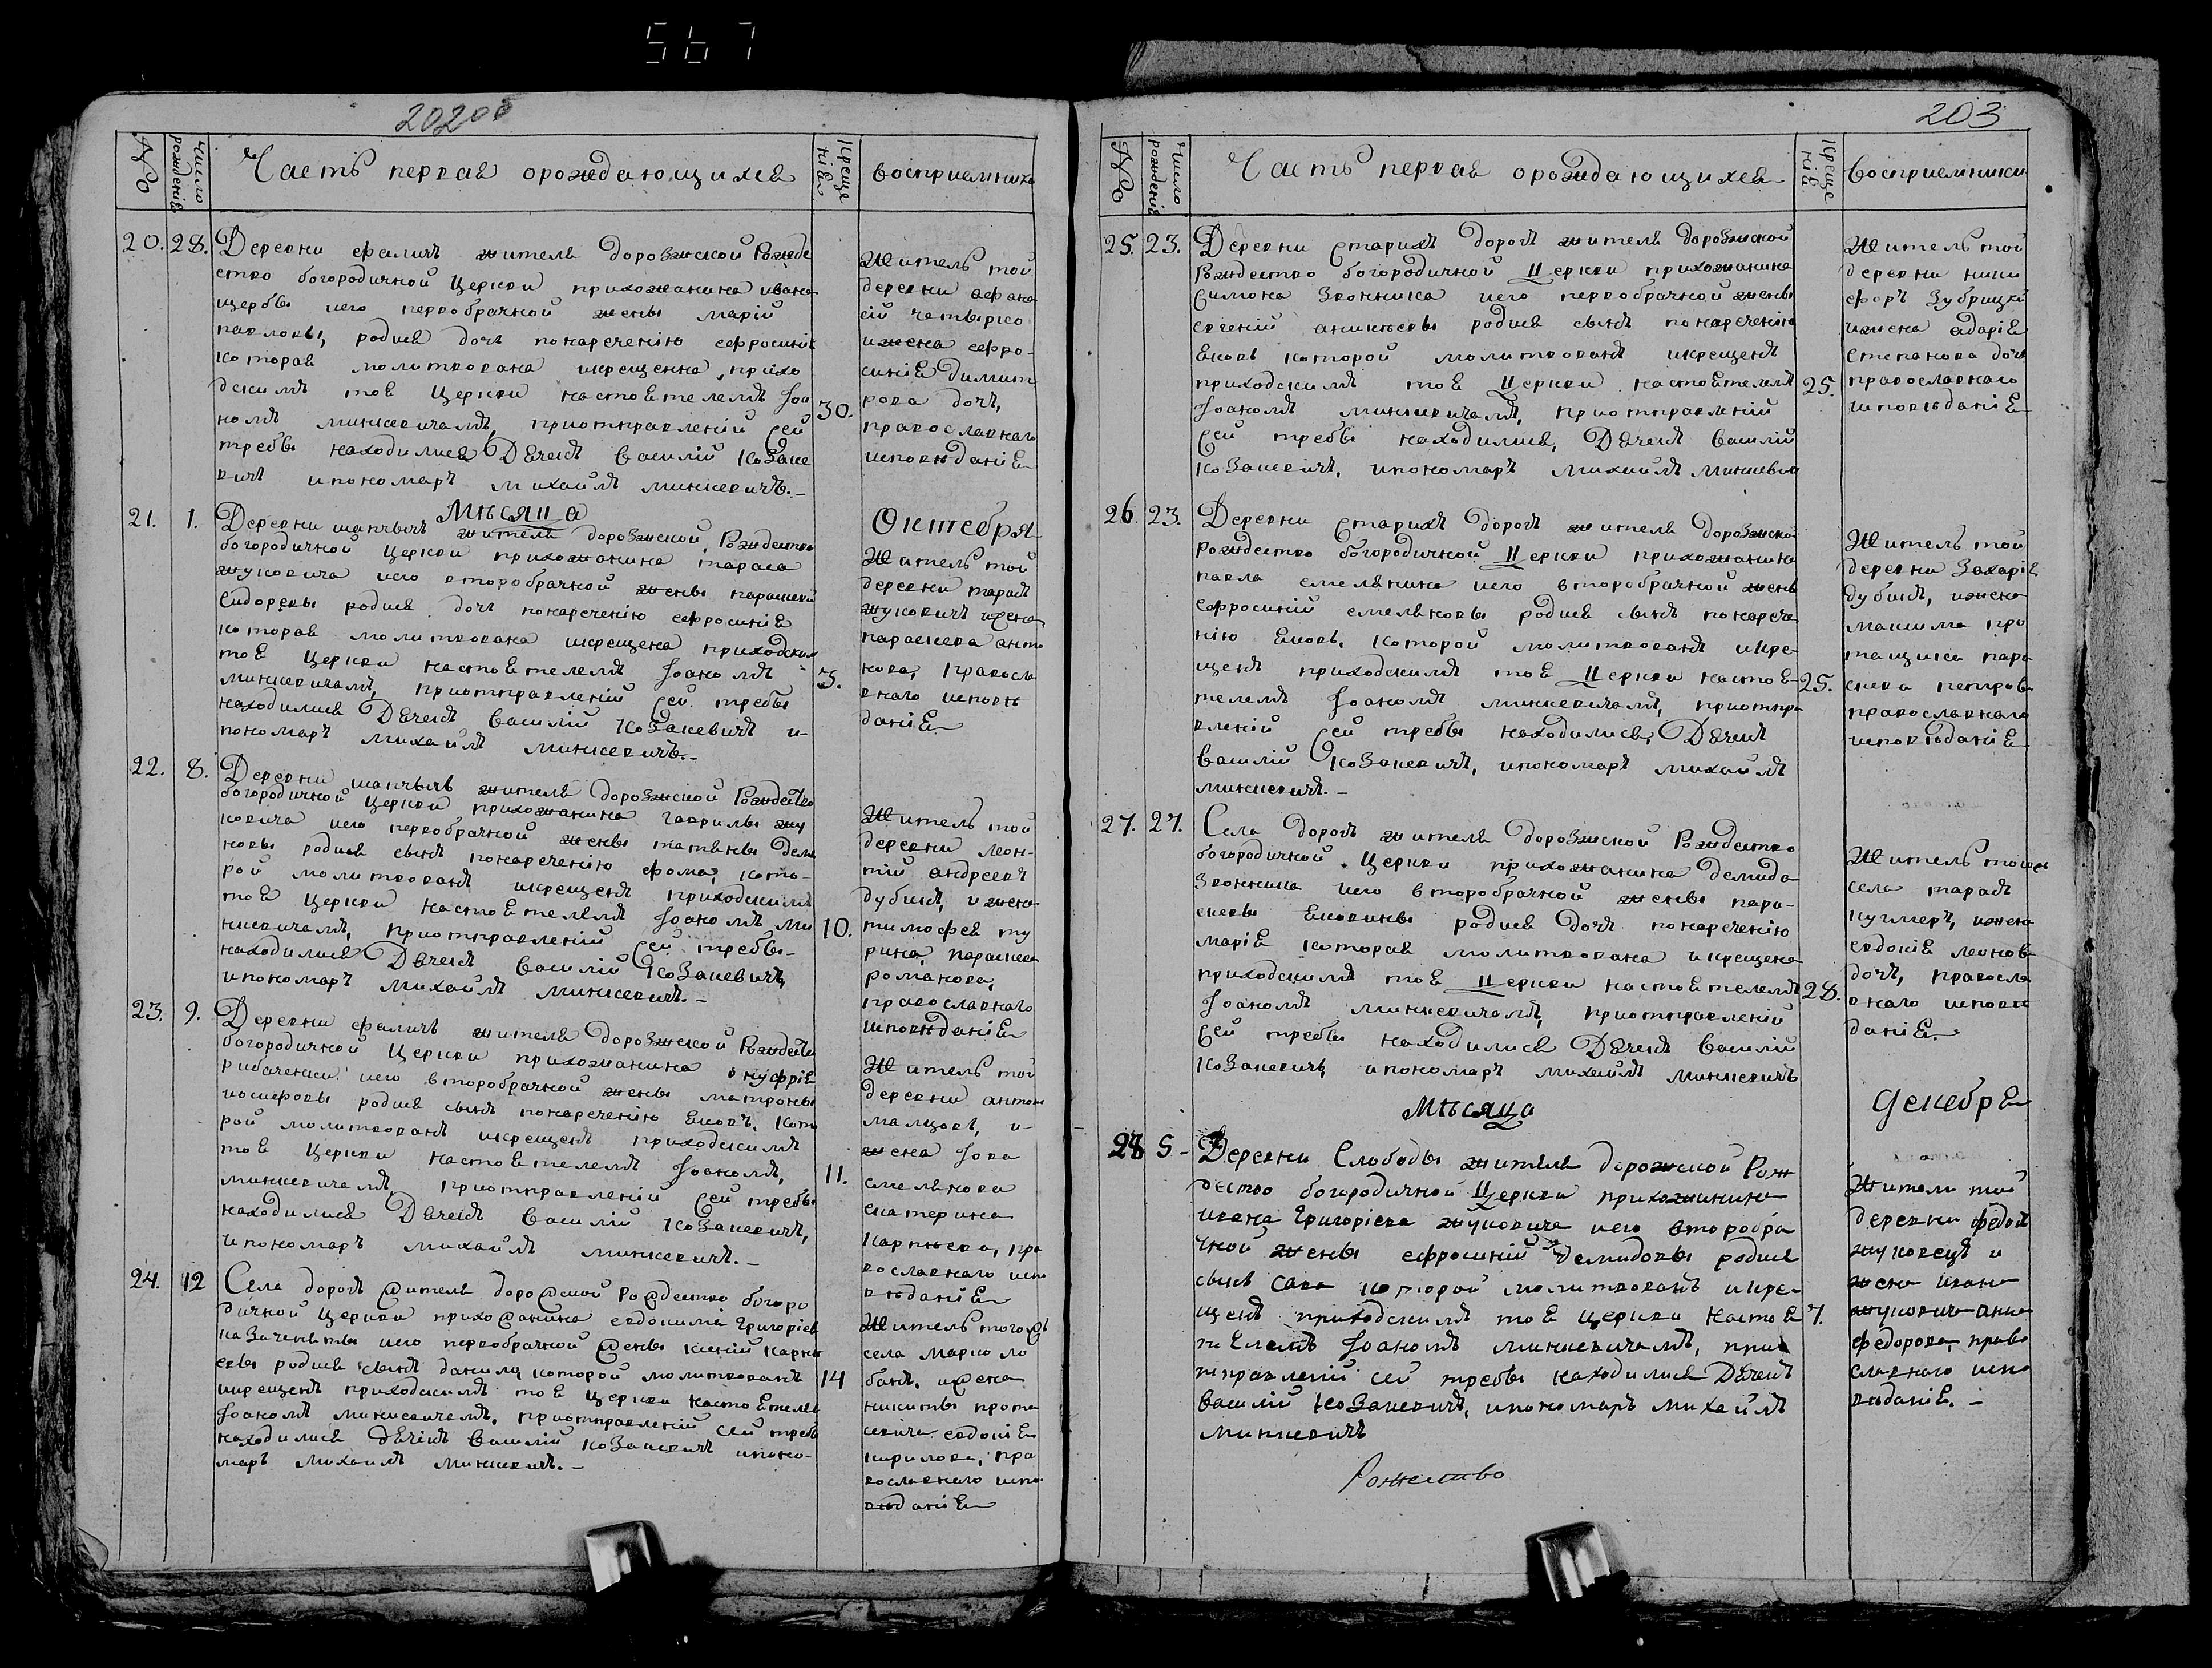 567
202об
№
Число рожденіѣ
Часть первая ораждающихся
Крещенія
восприемники
20. 28.
Деревни фаличъ жителя дорозжской Рожде
ство богородичной Церкви прихожанина ивана
щербы иего первобрачной жены маріи
павловы, родися дочь понареченію ефросинія
которая молитвована икрещенна, прихо
дскимъ тоя Церкви настоятелемъ Іоа
номъ минкевичамъ, приотправленіи сей
требы находилися Дячекъ василій козаке
вичъ ипономаръ михайлъ минкевичъ.-
30.
Житель той
деревни афана
сій четырко
ижена ефро-
синія димит
рова дочь,
православнаго
исповѣданія
Мѣсяца Октебря
21. 1.
Деревни шапчычъ жителя дорозжской, Рождество
богородичной Церкви прихожанина тараса
жуковича иего второбрачной жены параскеви
Сидоревы родися дочь понареченію ефросинія
которая молитвована икрещена приходским
тоя Церкви настоятелемъ Іоаномъ
минкевичамъ, приотправленіи сей требы
находилися Дячекъ василій Козакевичъ и-
пономаръ михайлъ минкевичъ.-
3.
Житель той
деревни тарасъ
жуковичъ ижена
параскева анто
нова, правосла
внаго исповѣ
данія
22. 8.
Деревни шапчычъ жителя дорозжской Рождество
богородичной Церкви прихожанина гаврилы жу
ковича иего первобрачной жены татяны деме
новы родися сынъ понареченію фома, кото-
рой молитвованъ икрещенъ приходскимъ
тоя Церкви настоятелемъ Іоаномъ ми
нкевичамъ, приотправленіи сей требы-
находилися Дячекъ василій Козакевичъ
ипономаръ михайлъ минкевичъ.-
10.
Житель той
деревни леон-
тій андреевъ
дубикъ, ижена
тимофея ту
рика, параскева
романова,
православнаго
исповѣданія
23. 9.
Деревни фаличъ жителя дорозжской Рождество
богородичной Церкви прихожанина онуфрія
рибаченки иего второбрачной жены матроны
иосифовы родися сынъ понареченію Яковъ, кото
рой молитвованъ икрещенъ приходскимъ
тоя Церкви настоятелемъ Іоаномъ,
минкевичамъ, приотправленіи сей требы
находилися Дячекъ василій Козакевичъ,
ипономаръ михайлъ минкевичъ.-
11.
Житель той
деревни антонъ
малцовъ, и-
жена Іова
емелянова
екатерина
карпѣева, пра
вославнаго испо
вѣданія
24. 12
Села дорогъ жителя дорожской Рождество богоро
дичной Церкви прихожанина евдокима Григоріева
казаченяты иего первобрачной жены ксеніи карпѣ
евы родися сынъ данило, которой молитвованъ
икрещенъ приходскимъ тоя Церкви настоятелемъ
Іоаномъ минкевичамъ, приотправленіи сей требы
находилися Дячекъ василій Козакевичъ ипоно-
маръ михайлъ минкевичъ.-
14
Житель тогожъ
села марко ло
банъ, ижена
никиты прота
севича евдокія
кирилова, пра
вославнаго испо
вѣданія
203
№
Число рожденіѣ
Часть первая ораждающихся
Крещенія
восприемники
25. 23.
Деревни Старихъ дорогъ жителя дорозжской
Рождество богородичной Церкви прихожанина
Симона Звонника иего первобрачной жены
евгеніи аникѣевы родися сынъ понареченію
Яковъ которой молитвованъ икрещенъ
приходскимъ тоя Церкви настоятелемъ
Іоаномъ минкевичамъ, приотправленіи
сей требы находилися, Дячекъ василій
козакевичъ, ипономаръ михайлъ минкевич
25.
Житель той
деревни ники
форъ Зубрицки
ижена адарія
Степанова дочь
православнаго
исповѣданія
26 23.
Деревни Старихъ дорогъ жителя дорозжской
рождество богородичной Церкви прихожанина
павла емеляника иего второбрачной жены
ефросиніи емеляновы родися сынъ понарече
нію Яковъ, которой молитвованъ икре-
щенъ приходскимъ тоя Церкви настоя-
телемъ Іоаномъ минкевичамъ, приотпра
вленіи сей требы находилися, Дячекъ
василій Козакевичъ, ипономаръ михайлъ
минкевичъ.-
25.
Житель той
деревни Захарія
дубикъ, ижена
максима про
тащика пара
скева петров
православнаго
исповѣданія
27. 27.
Села дорогъ жителя дорозжской Рождество
богородичной Церкви прихожанина демида
звонника иего второбрачной жены пара-
скевы Яковины родися дочь понареченію
марія которая молитвована икрещена
приходскимъ тоя Церкви настоятелемъ
Іоаномъ минкевичамъ, приотправленіи
сей требы находилися Дячекъ василій
козакевичъ, ипономаръ михайлъ минкевичъ
28.
Житель тогожъ
села тарасъ
кушнеръ, ижена
евдокія леонов
дочь, правосла
внаго исповѣ
данія.
Мѣсяца Декебря
28 5-
Деревни Слободы жителя дорожской Рож
дество богородичной Церкви прихожинина
ивана Григоріева жуковича иего второбра
чной жены ефросиніи Демидовы родися
сынъ сава которой молитвованъ икре-
щенъ приходскимъ тоя Церкви настоя
телемъ Іоаномъ минкевичамъ, прио
тправленіи сей требы находилися Дячекъ
василій Козакевичъ, ипономаръ михайлъ
минкевичъ
7.
Жители той
деревни федоръ
жуковецъ и
жена ивана
жуковича анна
федорова, право
славнаго испо
вѣданія.-
Рожество